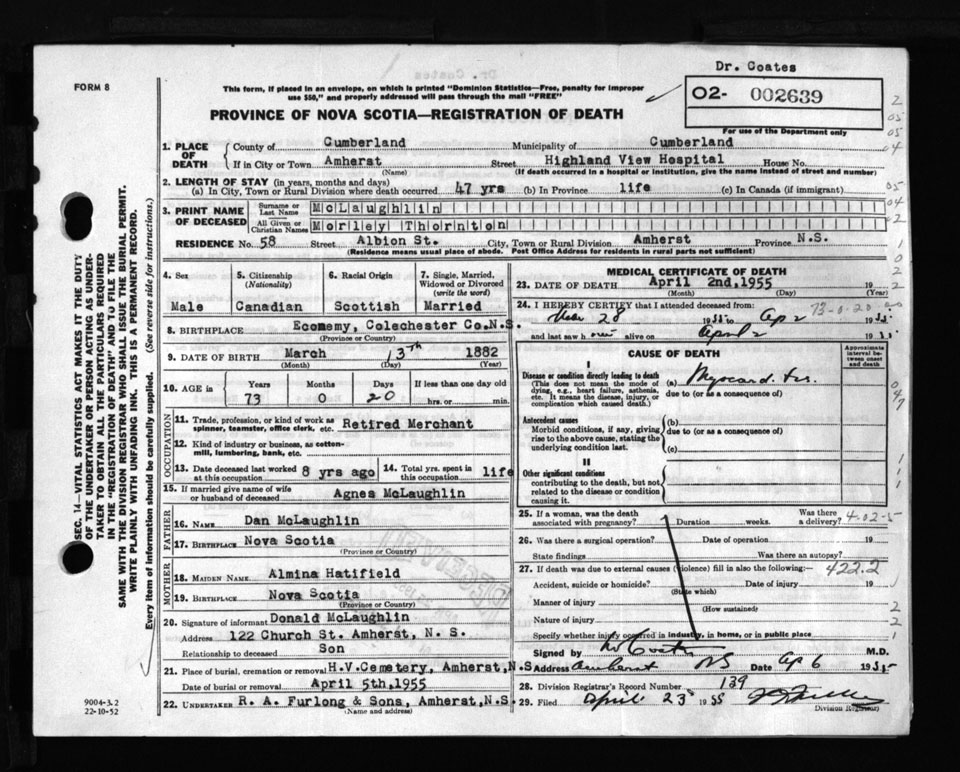 Dr. Coates
FORM 8
This form, if placed in an envelope, on which is printed "Dominion Statistics—Free, penalty for improper
use $50," and properly addressed will pass through the mail "FREE"
O2- 002639
PROVINCE OF NOVA SCOTIA—REGISTRATION OF DEATH
For use of the Department only
1. PLACE OF DEATH
County of Cumberland Municipality of Cumberland
If in City or Town Amherst Street Highland View Hospital House No.
(Name) (If death occurred in a hospital or institution, give the name instead of street and number)
2. LENGTH OF STAY (in years, months and days)
(a) In City, Town or Rural Division where death occurred 47 yrs (b) In Province life (c) In Canada (if immigrant)
3. PRINT NAME OF DECEASED
Surname or Last Name McLaughlin
All Given or Christian Names Morley Thornton
RESIDENCE No. 58 Street Albion St. City, Town or Rural Division Amherst Province N.S.
(Residence means usual place of abode. Post Office Address for residents in rural parts not sufficient)
4. Sex Male
5. Citizenship (Nationality) Canadian
6. Racial Origin Scottish
7. Single, Married, Widowed or Divorced (write the word) Married
8. BIRTHPLACE Ecomemy, Colechester Co.N.S.
(Province or Country)
9. DATE OF BIRTH March 13th 1882
(Month) (Day) (Year)
10. AGE in Years Months Days If less than one day old
73 0 20 hrs. or min.
OCCUPATION
11. Trade, profession, or kind of work as spinner, teamster, office clerk, etc. Retired Merchant
12. Kind of industry or business, as cotton-mill, lumbering, bank, etc.
13. Date deceased last worked at this occupation 8 yrs ago
14. Total yrs. spent in this occupation life
15. If married give name of wife or husband of deceased Agnes McLaughlin
FATHER
16. NAME Dan McLaughlin
17. BIRTHPLACE Nova Scotia
(Province or Country)
MOTHER
18. MAIDEN NAME Almina Hatifield
19. BIRTHPLACE Nova Scotia
(Province or Country)
20. Signature of informant Donald McLaughlin
Address 122 Church St. Amherst, N. S.
Relationship to deceased Son
21. Place of burial, cremation or removal H.V.Cemetery, Amherst,N.S
Date of burial or removal April 5th,1955
22. UNDERTAKER R. A. Furlong & Sons, Amherst,N.S.
(Name and address)
MEDICAL CERTIFICATE OF DEATH
23. DATE OF DEATH April 2nd,1955 19
(Month) (Day) (Year)
24. I HEREBY CERTIFY that I attended deceased from:
Mar 28 1955 to Ap 2 1955
and last saw him alive on April 2 19
CAUSE OF DEATH
Approximate interval between onset and death
I
Disease or condition directly leading to death
(This does not mean the mode of dying, e.g., heart failure, asthenia, etc. It means the disease, injury, or complication which caused death.)
(a)
due to (or as a consequence of)
Antecedent causes
Morbid conditions, if any, giving rise to the above cause, stating the underlying condition last.
(b)
due to (or as a consequence of)
(c)
II
Other significant conditions
contributing to the death, but not related to the disease or condition causing it.
25. If a woman, was the death associated with pregnancy? Duration weeks. Was there a delivery?
26. Was there a surgical operation? Date of operation 19
State findings Was there an autopsy?
27. If death was due to external causes (violence) fill in also the following:— 422.2
Accident, suicide or homicide? Date of injury 19
(State which)
Manner of injury
(How sustained)
Nature of injury
Specify whether injury occurred in industry, in home, or in public place
Signed by Coates M.D.
Address Amherst NS Date Ap 6 1955
28. Division Registrar's Record Number 139
29. Filed April 23 1955
Division Registrar
SEC. 14—VITAL STATISTICS ACT MAKES IT THE DUTY
OF THE UNDERTAKER OR PERSON ACTING AS UNDER-
TAKER TO OBTAIN ALL THE PARTICULARS REQUIRED
IN THE "REGISTRATION OF DEATH" AND TO FILE THE
SAME WITH THE DIVISION REGISTRAR WHO SHALL ISSUE THE BURIAL PERMIT.
WRITE PLAINLY WITH UNFADING INK. THIS IS A PERMANENT RECORD.
Every item of information should be carefully supplied. (See reverse side for instructions.)
9004-3.2
22-10-52